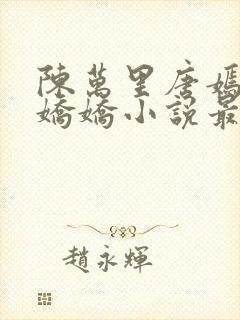 陳萬里唐嫣
嬌嬌小說最
趙永輝